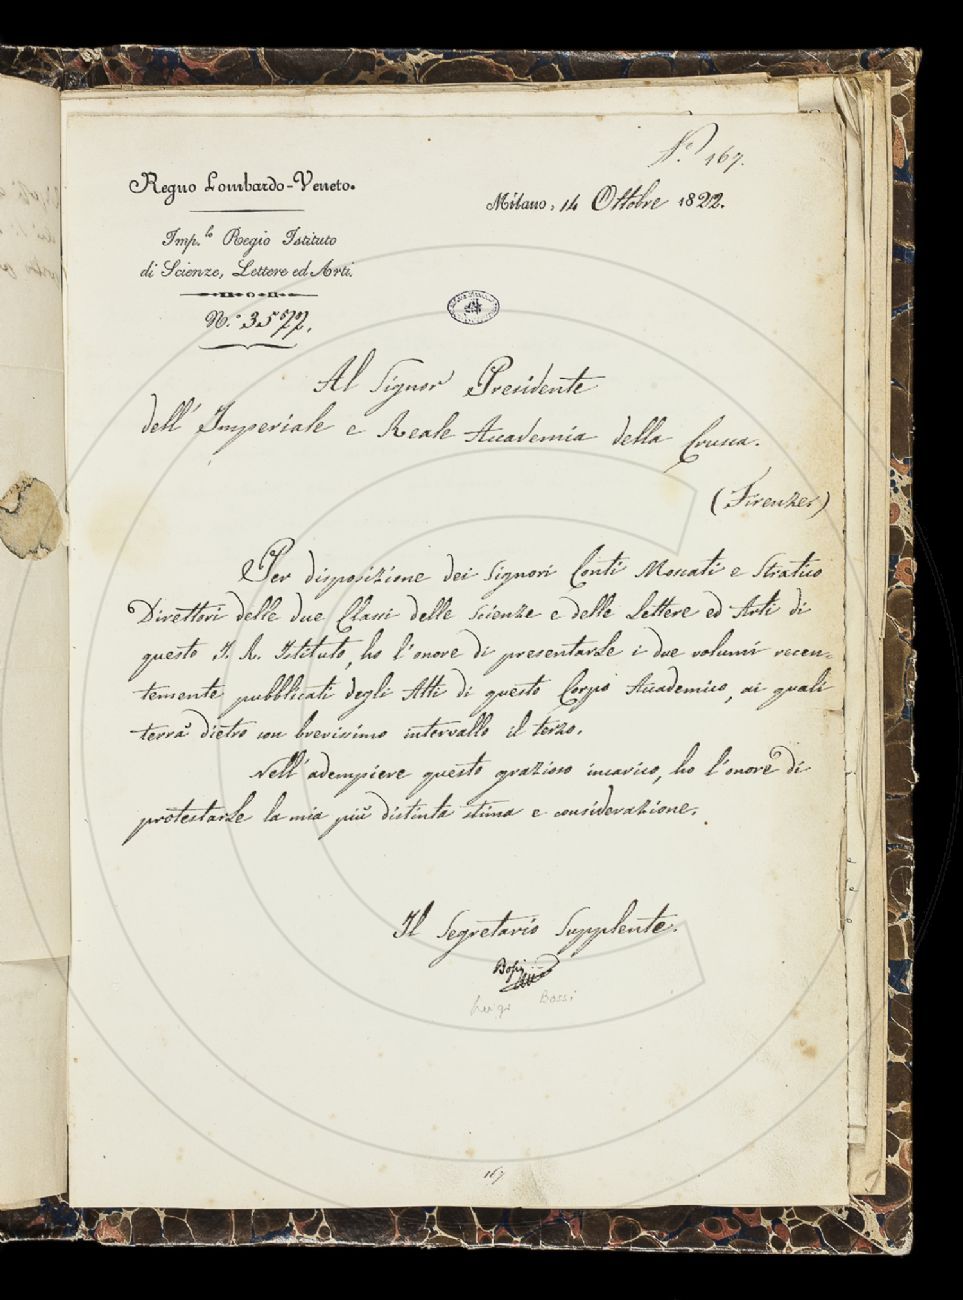 N.º 167.
Regno Lombardo-Veneto.
Milano, 14 Ottobre 1822.
Imp.le Regio Istituto
di Scienze, Lettere ed Arti.
N.º 3577.
Al Signor Presidente
dell' Imperiale e Reale Accademia della Crusca.
(Firenze)
Per disposizione dei Signori Conti Moscati e Stratico
Direttori delle due Classi delle Scienze e delle Lettere ed Arti di
questo I. R. Istituto, ho l'onore di presentarle i due volumi recen-
temente pubblicati degli Atti di questo Corpo Accademico, ai quali
terrà dietro con brevissimo intervallo il terzo.
Nell'adempiere questo grazioso incarico, ho l'onore di
protestarle la mia più distinta stima e considerazione.
Il Segretario Supplente.
Bossi
Luigi Bossi
167